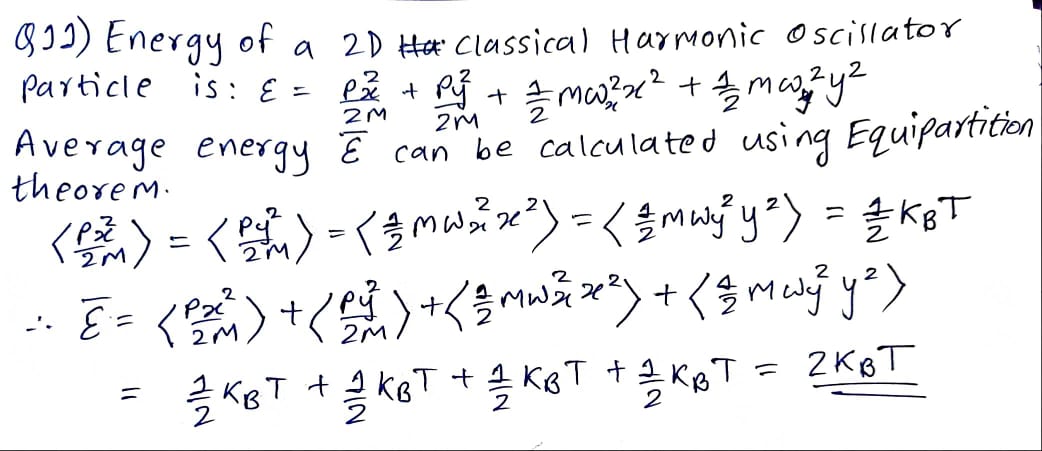 Q11) Energy of a 2D Ha Classical Harmonic Oscillator
Particle is: ε = Px²/2M + Py²/2M + 1/2 mωx²x² + 1/2 mωy²y²
Average energy ε̅ can be calculated using Equipartition
theorem.
⟨Px²/2M⟩ = ⟨Py²/2M⟩ = ⟨1/2 mωx²x²⟩ = ⟨1/2 mωy²y²⟩ = 1/2 KBT
∴ ε̅ = ⟨Px²/2M⟩ + ⟨Py²/2M⟩ + ⟨1/2 mωx²x²⟩ + ⟨1/2 mωy²y²⟩
= 1/2 KBT + 1/2 KBT + 1/2 KBT + 1/2 KBT = 2KBT